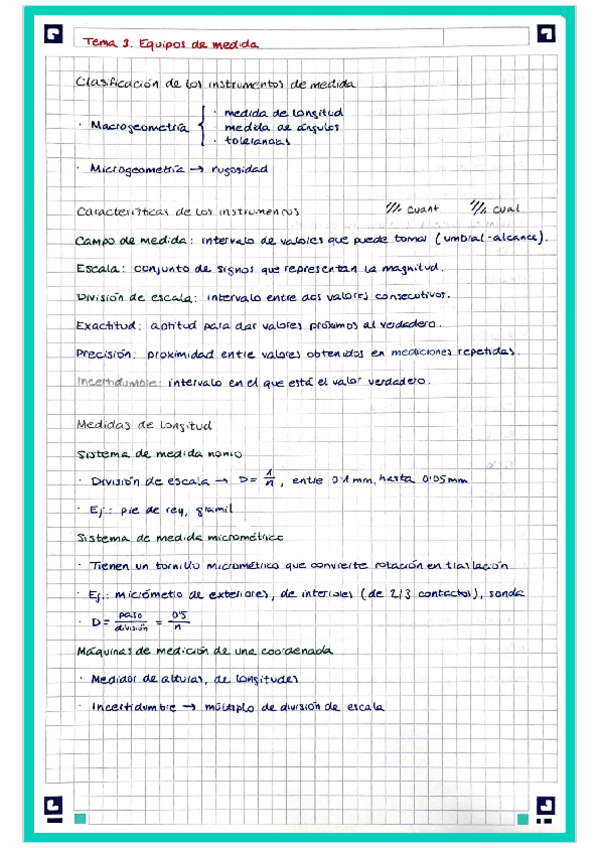 Tema 3. Equipos de medida
Clasificación de los instrumentos de medida
· Macrogeometría { · medida de longitud
medida de ángulos
· tolerancias
· Microgeometría → rugosidad
Características de los instrumentos /// cuant /// cual
Campo de medida: intervalo de valores que puede tomar (umbral-alcance).
Escala: conjunto de signos que representan la magnitud.
División de escala: intervalo entre dos valores consecutivos.
Exactitud: aptitud para dar valores próximos al verdadero.
Precisión: proximidad entre valores obtenidos en mediciones repetidas.
Incertidumbre: intervalo en el que está el valor verdadero.
Medidas de longitud
Sistema de medida nonio
· División de escala → D = 1/n, entre 0'1mm, hasta 0'05mm
· Ej.: pie de rey, gramil
Sistema de medida micrométrico
· Tienen un tornillo micrométrico que convierte rotación en traslación
· Ej.: micrómetro de exteriores, de interiores (de 2/3 contactos), sonda
· D = paso/división = 0'5/n
Máquinas de medición de una coordenada
· Medidor de alturas, de longitudes
· Incertidumbre → múltiplo de división de escala